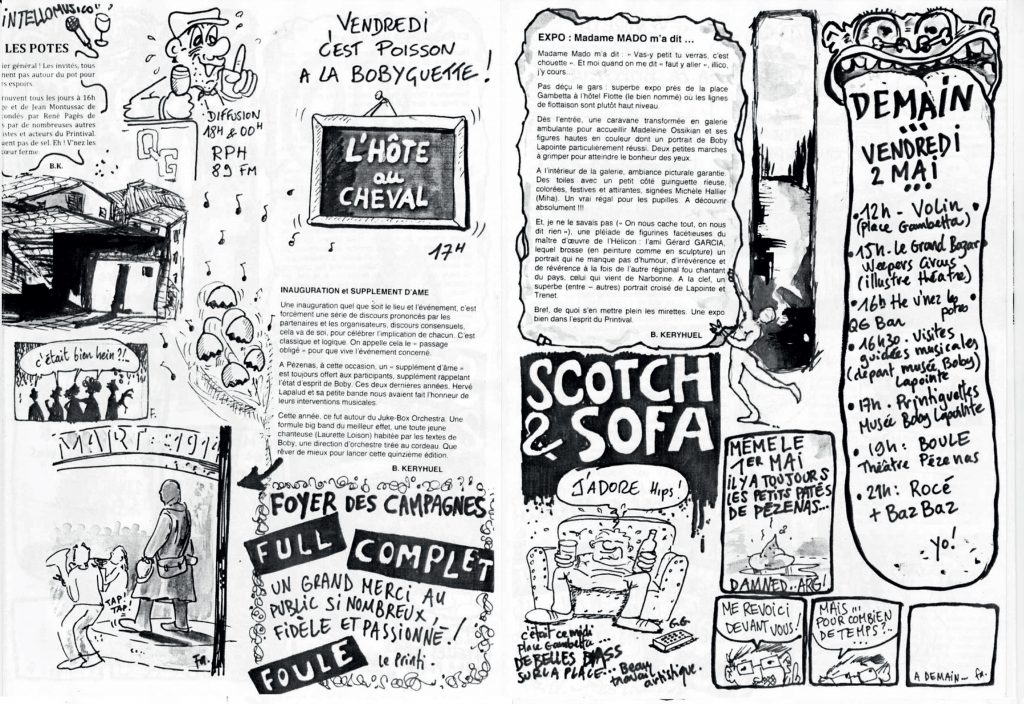 INTELLOMUSICO
LES POTES
ier général ! Les invités, tous
nent pas autour du pot pour
rs espoirs.
rouvent tous les jours à 16h
ge et de Jean Montussac de
ondés par René Pagès de
s par de nombreuses autres
istes et acteurs du Printival.
ent pas de sel. Eh ! V'nez les
cœur ferme.
B.K.
QG
DIFFUSION
18H & 00H
RPH
89 FM
VENDREDI
C'EST POISSON
A LA BOBYGUETTE !
L'HÔTE
au
CHEVAL
17H
c'était bien hein ?!..
F.
INAUGURATION et SUPPLEMENT D'AME
Une inauguration quel que soit le lieu et l'événement, c'est
forcément une série de discours prononcés par les
partenaires et les organisateurs, discours consensuels,
cela va de soi, pour célébrer l'implication de chacun. C'est
classique et logique. On appelle cela le « passage
obligé » pour que vive l'événement concerné.
A Pézenas, à cette occasion, un « supplément d'âme »
est toujours offert aux participants, supplément rappelant
l'état d'esprit de Boby. Ces deux dernières années, Hervé
Lapalud et sa petite bande nous avaient fait l'honneur de
leurs interventions musicales.
Cette année, ce fut autour du Juke-Box Orchestra. Une
formule big band du meilleur effet, une toute jeune
chanteuse (Laurette Loison) habitée par les textes de
Boby, une direction d'orchestre tirée au cordeau. Que
rêver de mieux pour lancer cette quinzième édition.
B. KERYHUEL
TAP !
TAP !
Fr.
FOYER DES CAMPAGNES
FULL COMPLET
UN GRAND MERCI AU
PUBLIC SI NOMBREUX,
FIDÈLE ET PASSIONNÉ !
FOULE
le Printi.
EXPO : Madame MADO m'a dit ...
Madame Mado m'a dit : « Vas-y petit tu verras, c'est
chouette ». Et moi quand on me dit « faut y aller », illico,
j'y cours...
Pas déçu le gars : superbe expo près de la place
Gambetta à l'hôtel Flotte (le bien nommé) ou les lignes
de flottaison sont plutôt haut niveau.
Dès l'entrée, une caravane transformée en galerie
ambulante pour accueillir Madeleine Ossikian et ses
figures hautes en couleur dont un portrait de Boby
Lapointe particulièrement réussi. Deux petites marches
à grimper pour atteindre le bonheur des yeux.
A l'intérieur de la galerie, ambiance picturale garantie.
Des toiles avec un petit côté guinguette rieuse,
colorées, festives et attirantes, signées Michèle Hallier
(Miha). Un vrai régal pour les pupilles. A découvrir
absolument !!!
Et, je ne le savais pas (« On nous cache tout, on nous
dit rien »), une pléiade de figurines facétieuses du
maître d'œuvre de l'Hélicon : l'ami Gérard GARCIA,
lequel brosse (en peinture comme en sculpture) un
portrait qui ne manque pas d'humour, d'irrévérence et
de révérence à la fois de l'autre régional fou chantant
du pays, celui qui vient de Narbonne. A la clef, un
superbe (entre – autres) portrait croisé de Lapointe et
Trenet.
Bref, de quoi s'en mettre plein les mirettes. Une expo
bien dans l'esprit du Printival.
B. KERYHUEL
SCOTCH
& SOFA
J'ADORE Hips !
G.G.
c'était ce midi
place Gambetta...
DE BELLES
SUR LA PLACE... Beau
travail artistique.
MÊME LE
1ER MAI
IL Y A TOUJOURS
LES PETITS PATÉS
DE PÉZENAS...
DAMNED.. ARG !
ME REVOICI
DEVANT VOUS !
MAIS...
POUR COMBIEN
DE TEMPS ?..
A DEMAIN... Fr.
DEMAIN
...
VENDREDI
2 MAI
...
• 12h - Volin
(Place Gambetta)
• 15h - Le Grand Bazar
Weepers Circus
(illustre théatre)
• 16h He v'nez les
potes
QG Bar
• 16h30 - Visites
guidées musicales
(départ musée Boby
Lapointe)
• 17h - Printiguettes
Musée Boby Lapointe
• 19h : BOULE
Théatre Pézenas
• 21h : Rocé
+ Baz Baz
yo !